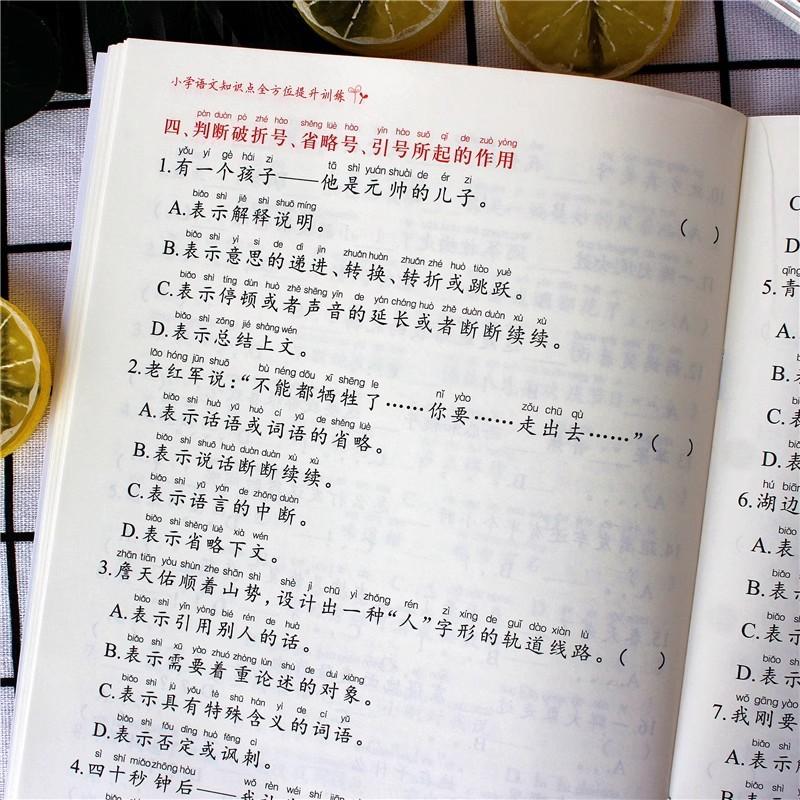 小学语文知识点全方位提升训练
pàn duàn pò zhé hào shěng lüè hào yǐn hào suǒ qǐ de zuò yòng
四、判断破折号、省略号、引号所起的作用
yǒu yí gè hái zi tā shì yuán shuài de ér zi
1.有一个孩子——他是元帅的儿子。
( )
biǎo shì jiě shì shuō míng
A.表示解释说明。
biǎo shì yì si de dì jìn zhuǎn huàn zhuǎn zhé huò tiào yuè
B.表示意思的递进、转换、转折或跳跃。
biǎo shì tíng dùn huò zhě shēng yīn de yán cháng huò zhě duàn duàn xù xù
C.表示停顿或者声音的延长或者断断续续。
biǎo shì zǒng jié shàng wén
D.表示总结上文。
lǎo hóng jūn shuō bù néng dōu xī shēng le nǐ yào zǒu chū qù
2.老红军说:“不能都牺牲了……你要……走出去……”( )
biǎo shì huà yǔ huò cí yǔ de shěng lüè
A.表示话语或词语的省略。
biǎo shì shuō huà duàn duàn xù xù
B.表示说话断断续续。
biǎo shì yǔ yán de zhōng duàn
C.表示语言的中断。
biǎo shì shěng lüè xià wén
D.表示省略下文。
zhān tiān yòu shùn zhe shān shì shè jì chū yì zhǒng rén zì xíng de guǐ dào xiàn lù
3.詹天佑顺着山势,设计出一种“人”字形的轨道线路。( )
biǎo shì yǐn yòng bié rén de huà
A.表示引用别人的话。
biǎo shì xū yào zhuó zhòng lùn shù de duì xiàng
B.表示需要着重论述的对象。
biǎo shì jù yǒu tè shū hán yì de cí yǔ
C.表示具有特殊含义的词语。
biǎo shì fǒu dìng huò fěng cì
D.表示否定或讽刺。
sì shí miǎo zhōng hòu wǒ rèn wéi shí jiān
4.四十秒钟后——我认为
C
D
qīng
5.青
A.
B.
C.
D.表
hú biān
6.湖边
A.表
B.表
C.表示
D.表示
wǒ gāng yào
7.我刚要
A.表示
B.表示